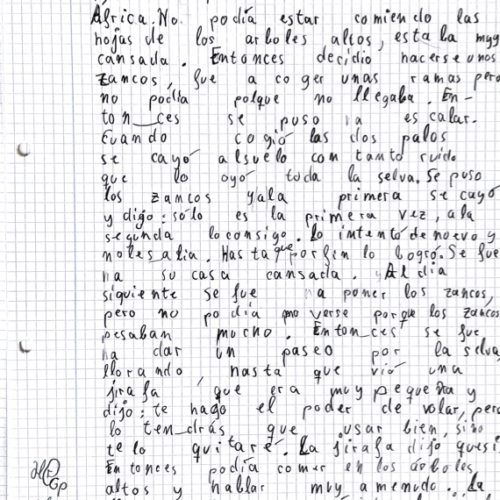 África. No podía estar comiendo las
hojas de los arboles altos, estaba muy
cansada. Entonces decidio hacerse unos
zancos, fue a coger unas ramas pero
no podía polque no llegaba. En-
ton_ces se puso a escalar.
Cuando cogió las dos palos
se cayó alsuelo con tanto ruido
que lo oyó toda la selva. Se puso
los zancos yala primera se cayó
y dijo: sólo es la primera vez, ala
segunda loconsigo. Lo intentó de nuevo y
nolesalia. Hasta que porfin lo logró. Se fue
ha su casa cansada. Al día
siguiente se fue ha poner los zancos,
pero no podía moverse porque los zancos
pesaban mucho. Enton_ces se fue
ha dar un paseo por la selva
llorando, hasta que vió una
jirafa, que era muy pequeña y
dijo: te hago el poder de volar, pero
lo ten_drás que usar bien, sino
te lo quitaré. La jirafa dijo quesi.
Entonces podía comer en los árboles
altos y hablar muy amenudo. La